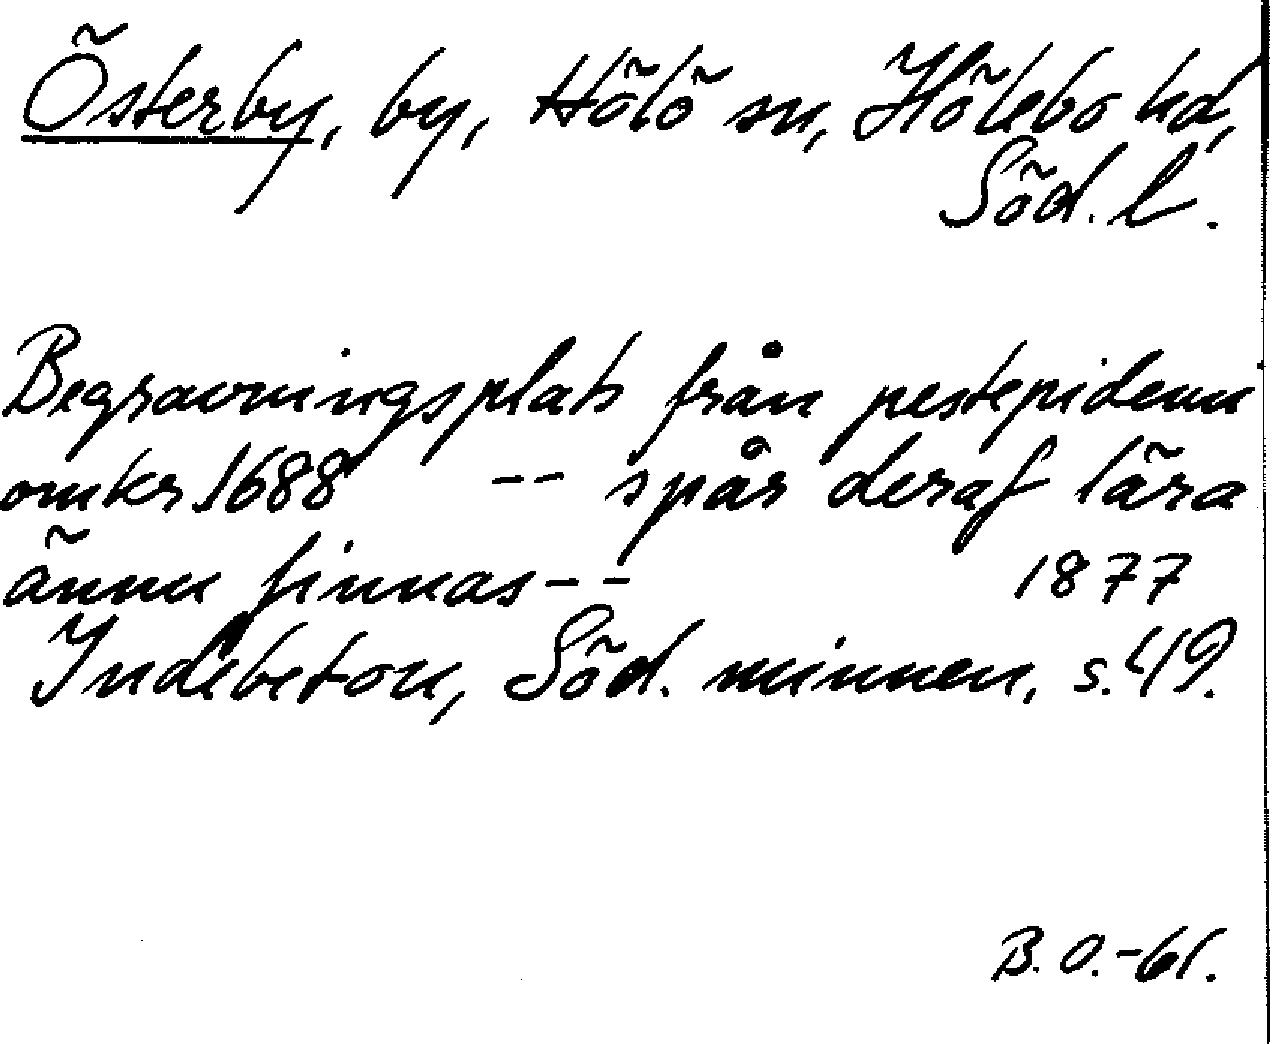 Österby, by, Hölö sn, Hölebo hd,
Söd. l.
Begravningsplats från pestepidemi
omkr 1688 -- spår deraf lära
ännu finnas -- 1877
Indebetou, Söd. minnen, s. 49.
B. O. -61.